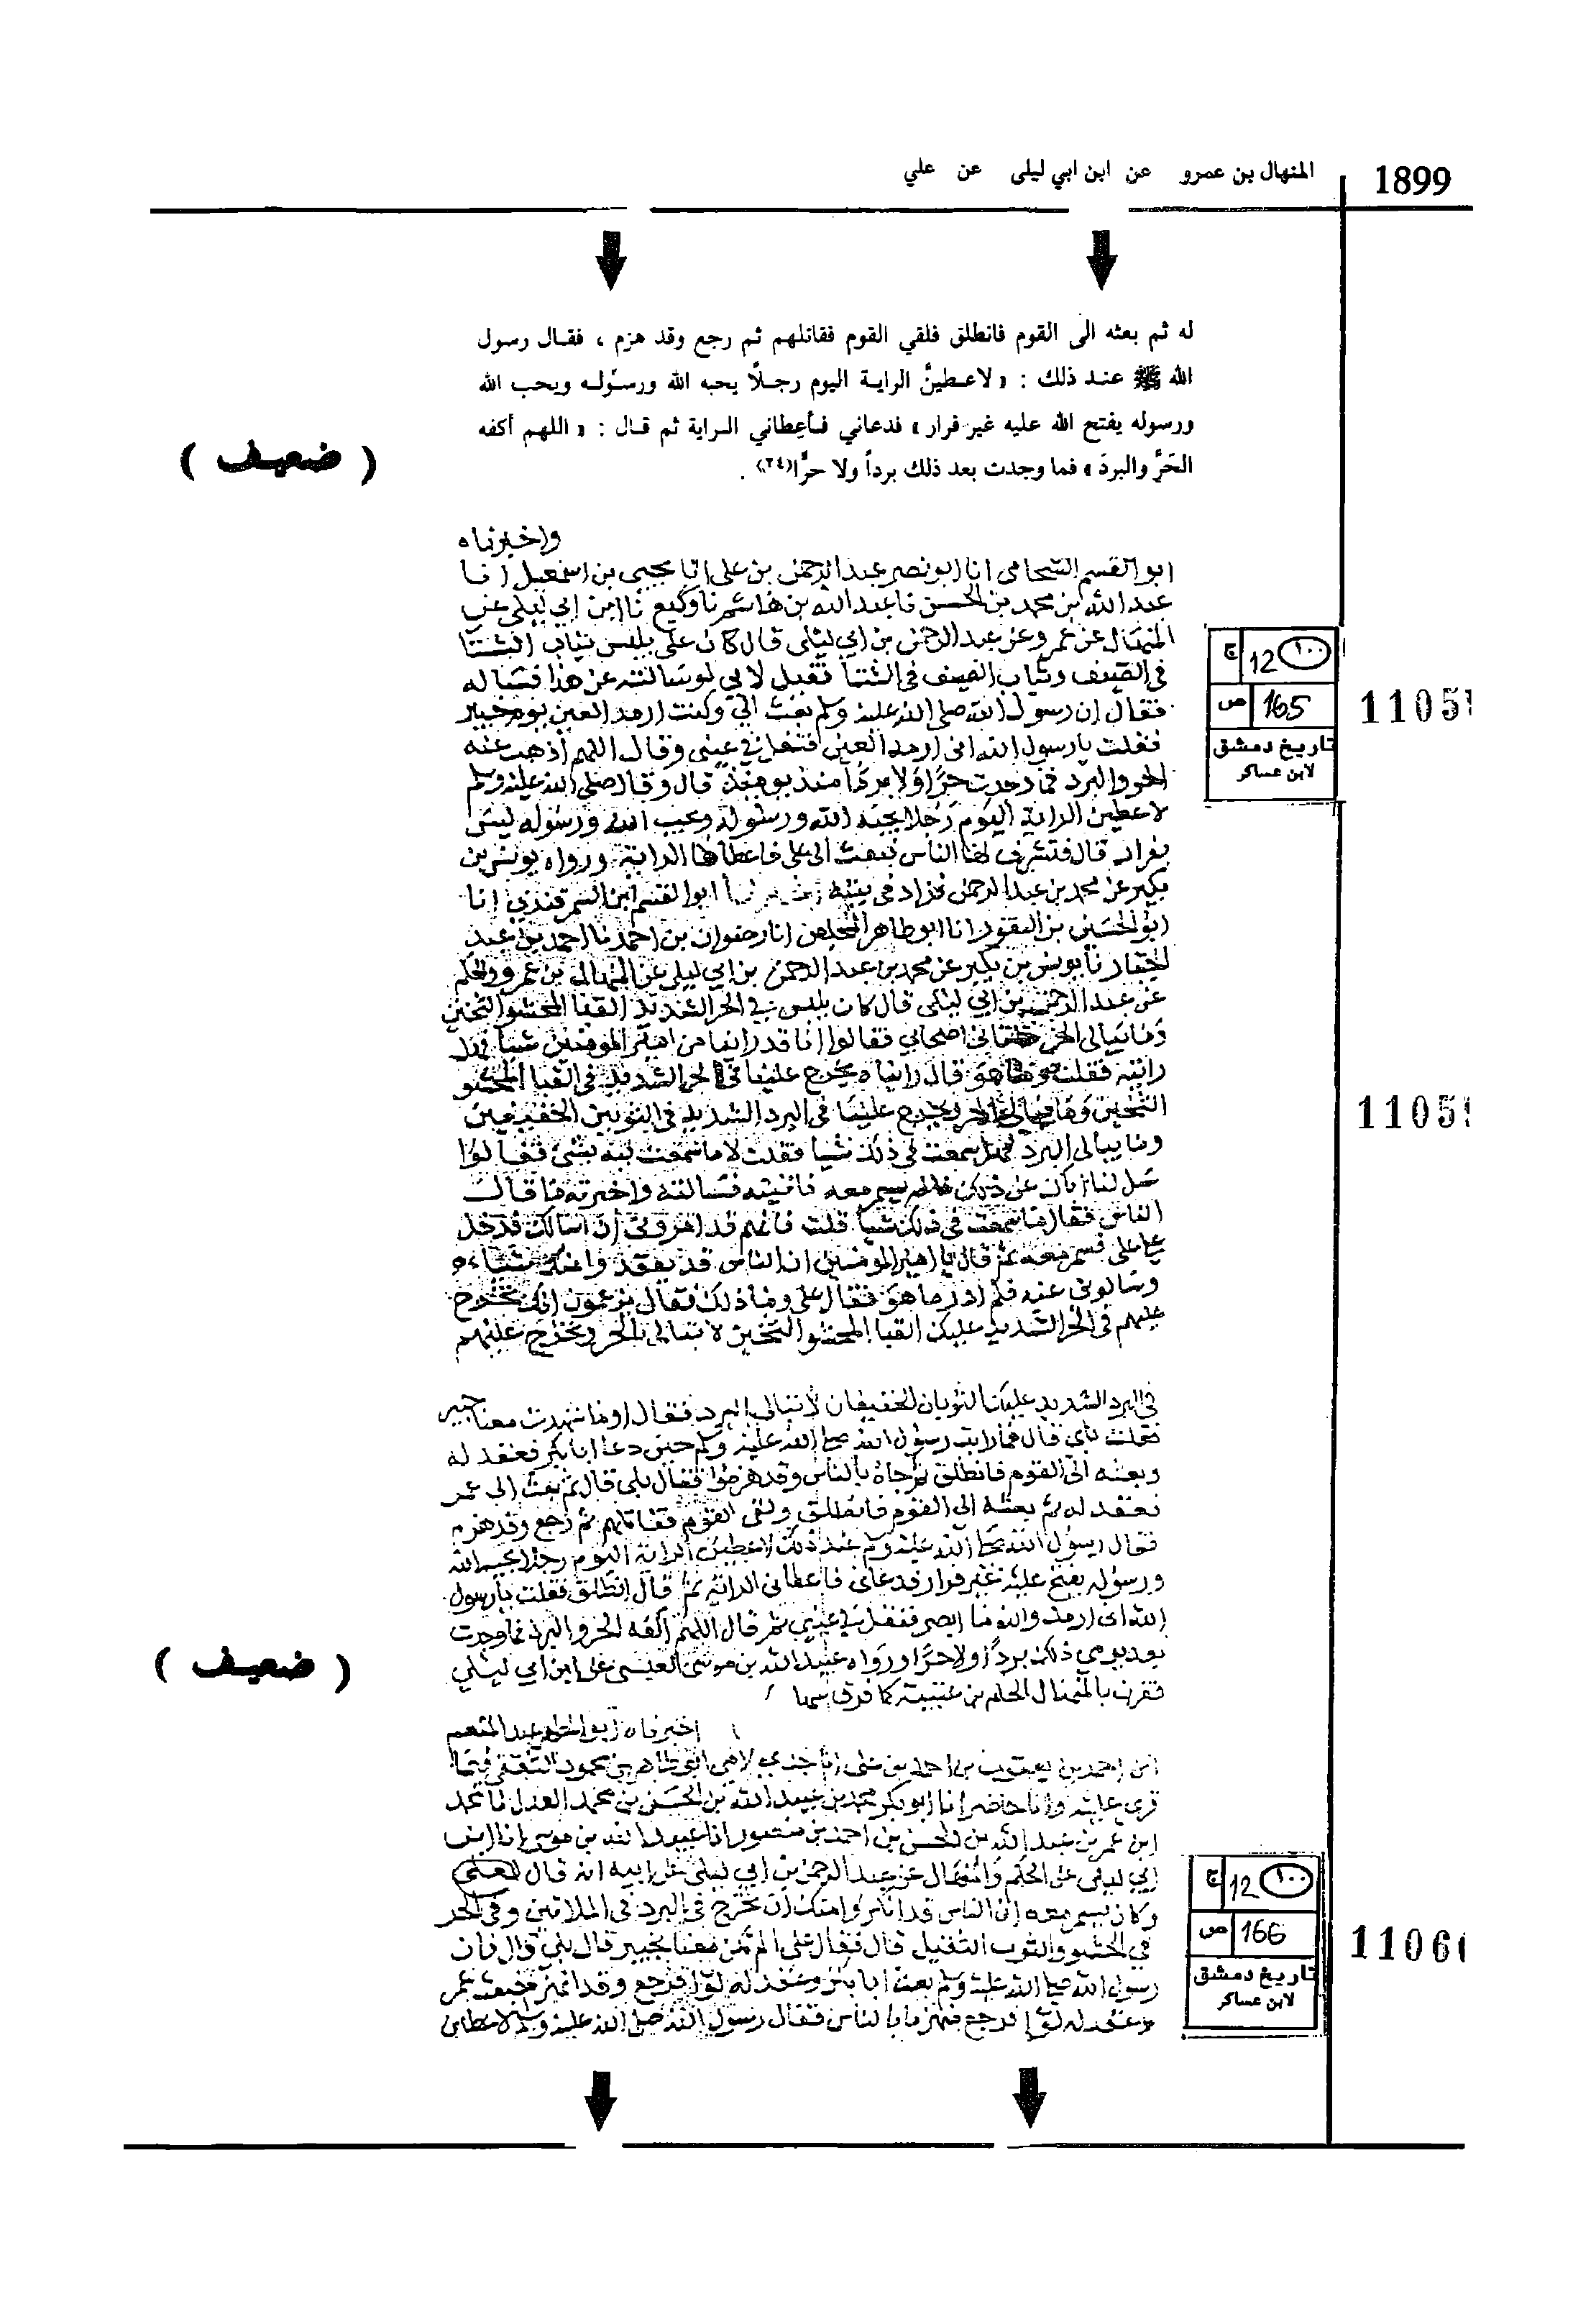 1899
المنهال بن عمرو عن ابن ابي ليلى عن علي
له ثم بعثه الى القوم فانطلق فلقي القوم فقاتلهم ثم رجع وقد هزم ، فقال رسول
الله ﷺ عند ذلك : « لاعطينَّ الراية اليوم رجلًا يحبه الله ورسوله ويحب الله
ورسوله يفتح الله عليه غير فرار » فدعاني فأعطاني الراية ثم قال : « اللهم أكفه
الحَرَّ والبردَ » فما وجدت بعد ذلك برداً ولا حرًّا(٢٤) .
( ضعيف )
واخبرناه
ابو القسم الشحامى انا ابو نصر عبد الرحمن بن على انا يحيى بن اسمعيل انا
عبد الله بن محمد بن الحسن نا عبد الله بن هاشم نا وكيع نا ابن ابي ليلى عن
المنهال عن عمرو عن عبد الرحمن بن ابي ليلى قال كان على يلبس ثياب الشتا
في الصيف وثياب الصيف في الشتا فقيل لابي لو سالته عن هذا فساله
فقال ان رسول الله صلى الله عليه وسلم بعث الي وكنت ارمد العين يوم خيبر
فقلت يا رسول الله انى ارمد العين فتفل في عينى وقال اللهم أذهب عنه
الحر والبرد فما وجدت حرًا ولا بردًا منذ يومئذ قال وقال صلى الله عليه وسلم
لاعطين الراية اليوم رجلا يحبه الله ورسوله ويحب الله ورسوله ليس
بفرار قال فتشرف لها الناس فبعث الى على فاعطاها الراية ورواه يونس بن
بكير عن محمد بن عبد الرحمن فزاد في ابو القسم ابن السمرقندي انا
ابو الحسين بن النقور انا ابو طاهر المخلص انا رضوان بن احمد نا احمد بن عبد
الجبار نا يونس بن بكير عن محمد بن عبد الرحمن بن ابي ليلى عن المنهال بن عمرو والحكم
عن عبد الرحمن بن ابي ليلى قال كان يلبس في الحر الشديد القبا المحشو الثخين
وما يبالى الحر اصحابي فقالوا انا قد راينا من امير المومنين شيا هل
رايته فقلت هو قال رايناه يخرج علينا في الحر الشديد في القبا المحشو
الثخين وما يبالى الحر ويخرج علينا في البرد الشديد في الثوبين الخفيفين
وما يبالى البرد فهل سمعت في ذلك شيا فقلت لا ما سمعت فيه بشئ فقالوا
سل لنا اباك عن ذلك فانه يسمر معه فاتيته فسالته واخبرته ما قال
الناس فقال ما سمعت في ذلك شيا قلت فانهم قد امروني أن اسالك فدخل
على على فسمر معه ثم قال يا امير المومنين ان الناس قد
وسالونى عنه فلم ادر ما هو فقال على وما ذلك فقال يزعمون انك تخرج
عليهم في الحر الشديد عليك القبا المحشو الثخين لا تبالى الحر وتخرج عليهم
في البرد الشديد عليك الثوبان الخفيفان لا تبالى البرد فقال اوما شهدت معنا خيبر
فقلت بلى قال فما رايت رسول الله صلى الله عليه وسلم حين دعا ابا بكر فعقد له
وبعثه الى القوم فانطلق ثم جاه بالناس وقد هزموا فقال بلى قال ثم بعث الى عمر
فعقد له ثم بعثه الى القوم فانطلق ولقى القوم فقاتلهم ثم رجع وقد هزم
فقال رسول الله صلى الله عليه وسلم عند ذلك لاعطين الراية اليوم رجلا يحبه الله
ورسوله يفتح عليه غير فرار فدعانى فاعطانى الراية ثم قال انطلق فقلت يا رسول
الله انى ارمد والله ما ابصر فتفل في عيني ثم قال اللهم اكفه الحر والبرد فما وجدت
بعد يومي ذلك بردًا ولا حرًا ورواه عبيد الله بن موسى العبسى عن ابن ابي ليلى
فقرن بالمنهال الحكم بن عتيبة كما
( ضعيف )
اخبرناه ابو عبد المنعم
ابن احمد بن يعقوب بن احمد بن على انا جدي لامي ابي طاهر بن محمود الثقفى فيما
قرى عليه وانا حاضر انا ابو بكر محمد بن عبد الله بن الحسين بن محمد العدل نا محمد
ابن عمر بن عبد الله بن الحسن بن احمد بن منصور انا عبيد الله بن موسى انا ابن
ابي ليلى عن الحكم والمنهال عن عبد الرحمن بن ابي ليلى عن ابيه انه قال لعلى
وكان يسمر معه ان الناس قد انكروا منك ان تخرج في البرد في الملاتين وفي الحر
في الحشو والثوب الثقيل قال فقال على الم تكن معنا بخيبر قال بلى قال فان
رسول الله صلى الله عليه وسلم بعث ابا بكر وعقد له لوا فرجع وقد انهزم فبعث عمر
وعقد له لوا فرجع منهزما بالناس فقال رسول الله صلى الله عليه وسلم لاعطين
١٠٠ 12 ج
165 ص
تاريخ دمشق
لابن عساكر
1105
1105
١٠٠ 12 ج
166 ص
تاريخ دمشق
لابن عساكر
1106